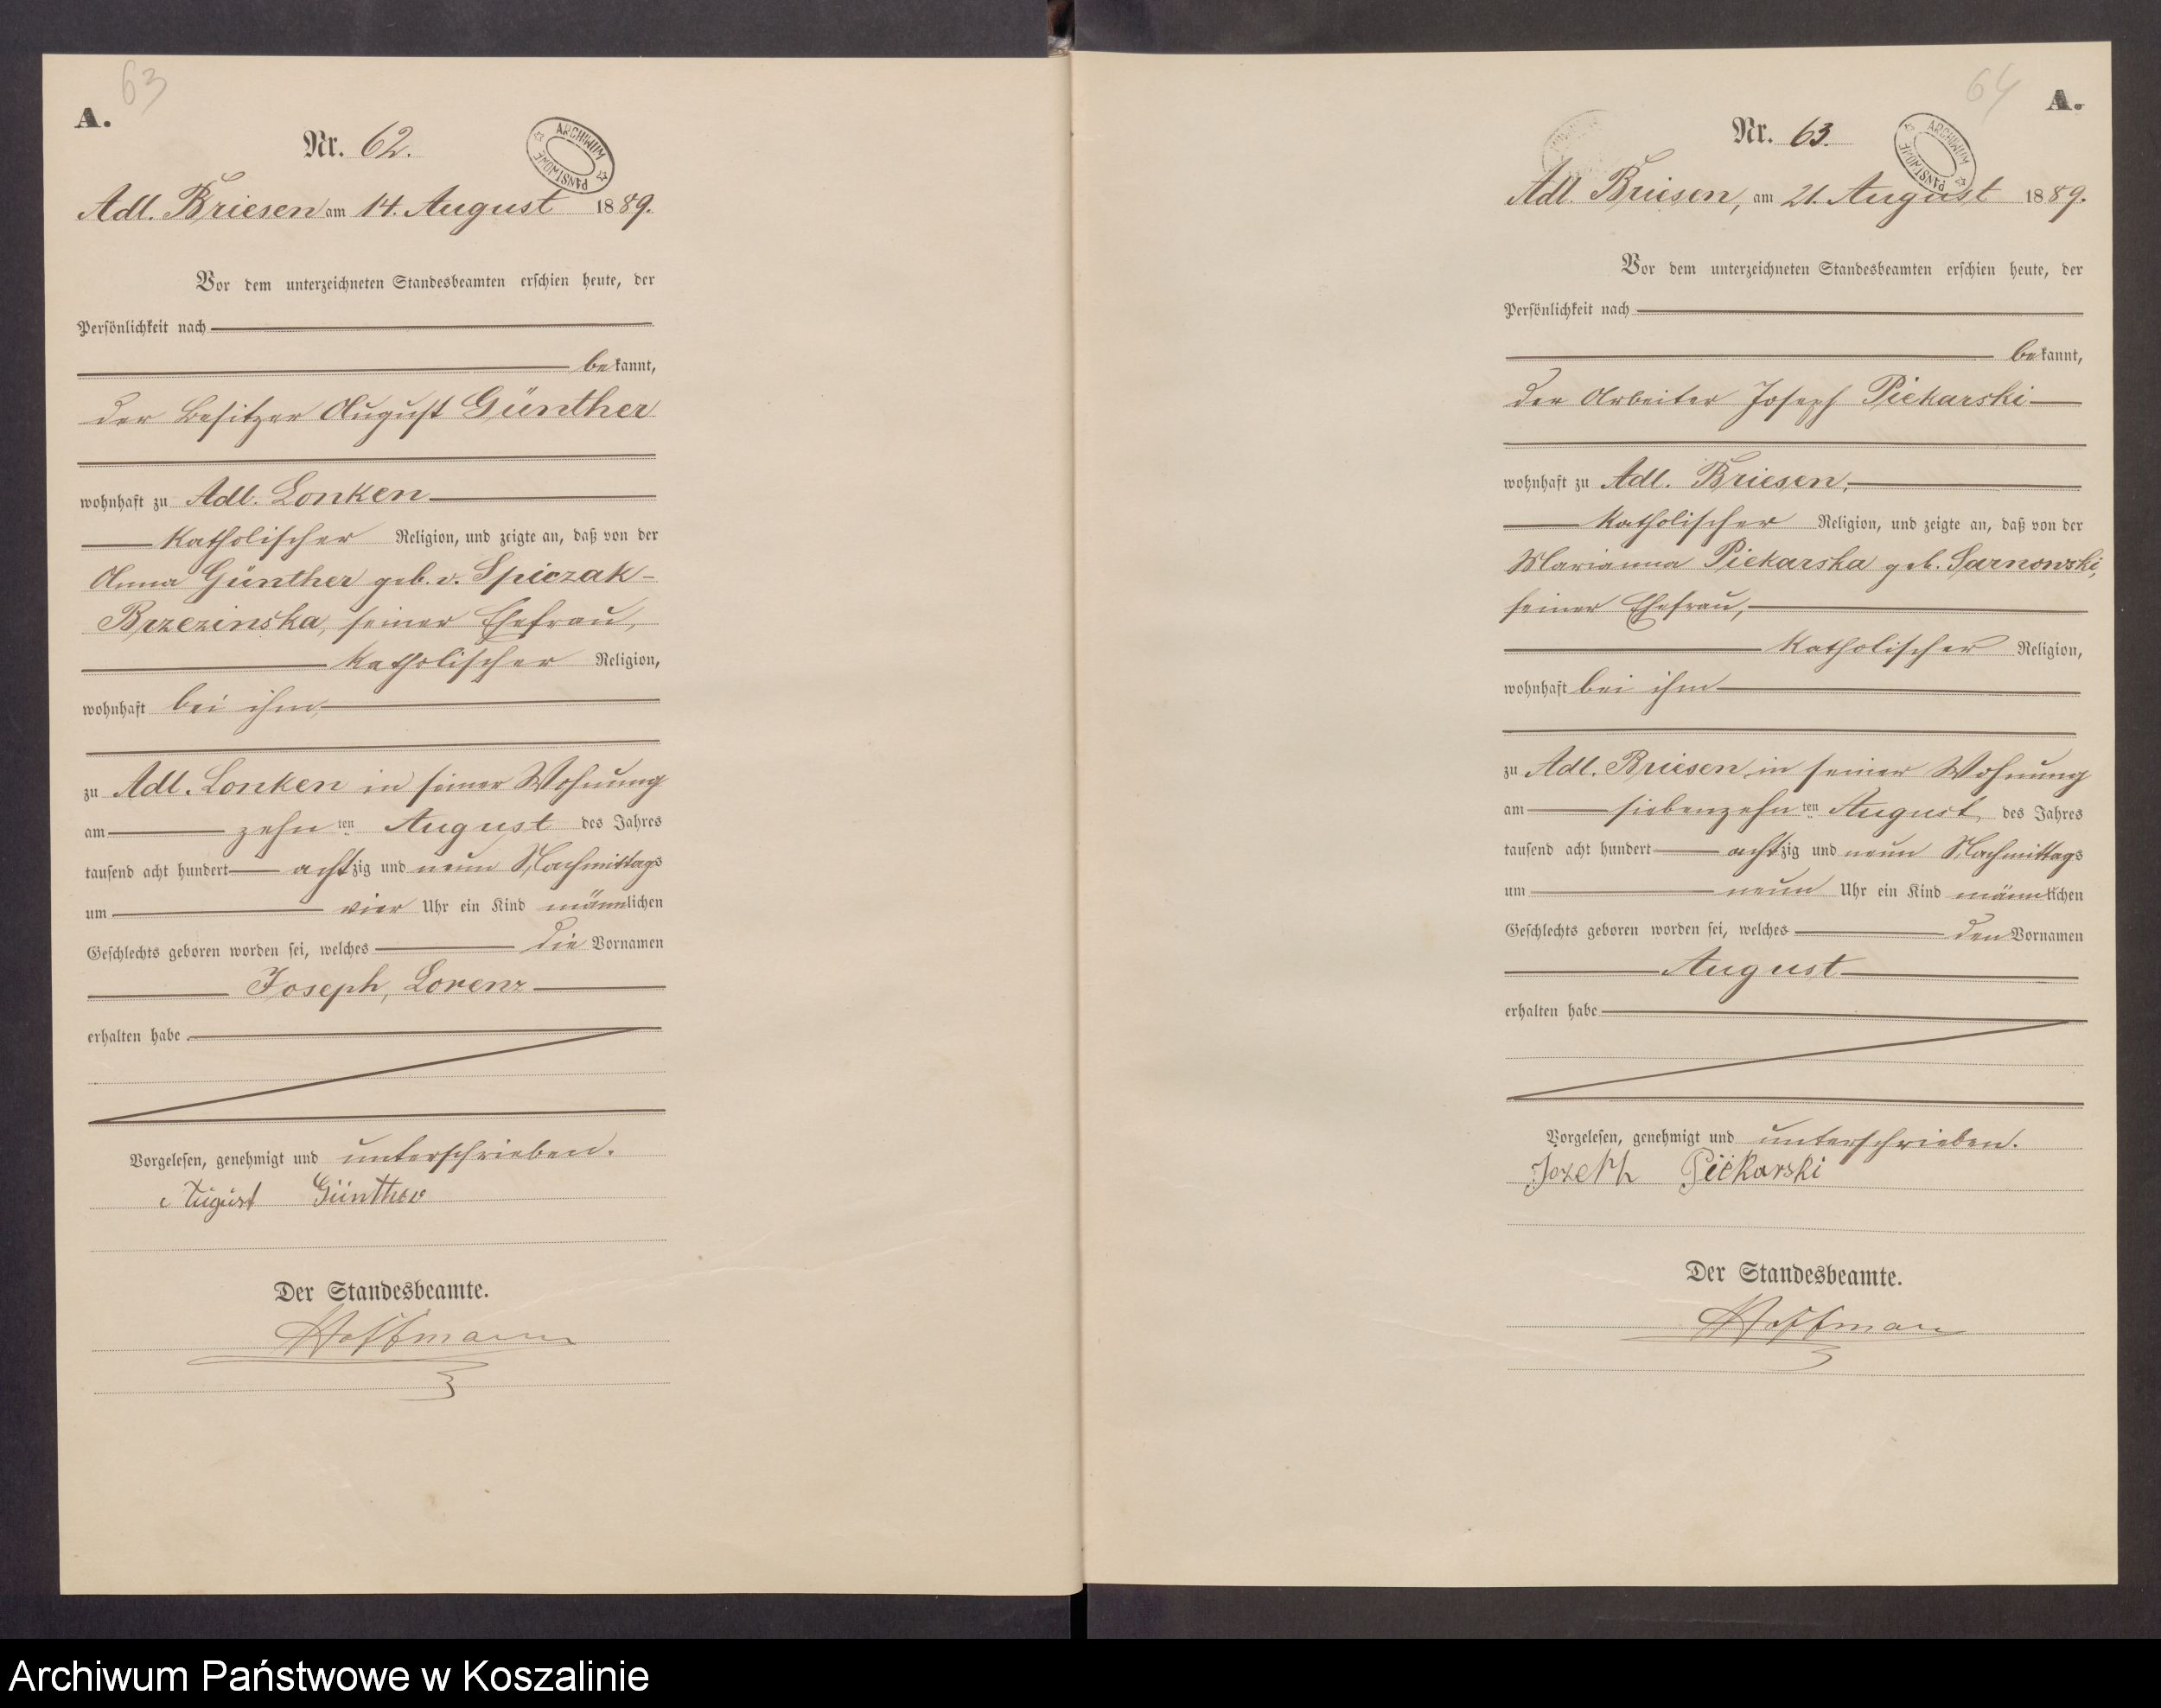 63
A.
Nr. 62.
ARCHIWUM PAŃSTWOWE
Adl. Briesen am 14. August 1889.
Vor dem unterzeichneten Standesbeamten erschien heute, der
Persönlichkeit nach
bekannt,
der Besitzer August Günther
wohnhaft zu Adl. Lonken
katholischer Religion, und zeigte an, daß von der
Anna Günther geb. v. Spiczak-
Brzezinska, seiner Ehefrau,
katholischer Religion,
wohnhaft bei ihm
zu Adl. Lonken in seiner Wohnung
am zehn ten August des Jahres
tausend acht hundert achtzig und neun Nachmittags
um vier Uhr ein Kind männlichen
Geschlechts geboren worden sei, welches die Vornamen
Joseph, Lorenz
erhalten habe
Vorgelesen, genehmigt und unterschrieben.
August Günther
Der Standesbeamte.
Hoffmann
64
A.
Nr. 63.
ARCHIWUM PAŃSTWOWE
Adl. Briesen, am 21. August 1889.
Vor dem unterzeichneten Standesbeamten erschien heute, der
Persönlichkeit nach
bekannt,
der Arbeiter Joseph Piekarski
wohnhaft zu Adl. Briesen,
katholischer Religion, und zeigte an, daß von der
Marianna Piekarska geb. Sarnowski,
seiner Ehefrau,
katholischer Religion,
wohnhaft bei ihm
zu Adl. Briesen in seiner Wohnung
am siebenzehn ten August des Jahres
tausend acht hundert achtzig und neun Nachmittags
um neun Uhr ein Kind männlichen
Geschlechts geboren worden sei, welches den Vornamen
August
erhalten habe
Vorgelesen, genehmigt und unterschrieben.
Jozeph Piekarski
Der Standesbeamte.
Hoffmann
Archiwum Państwowe w Koszalinie